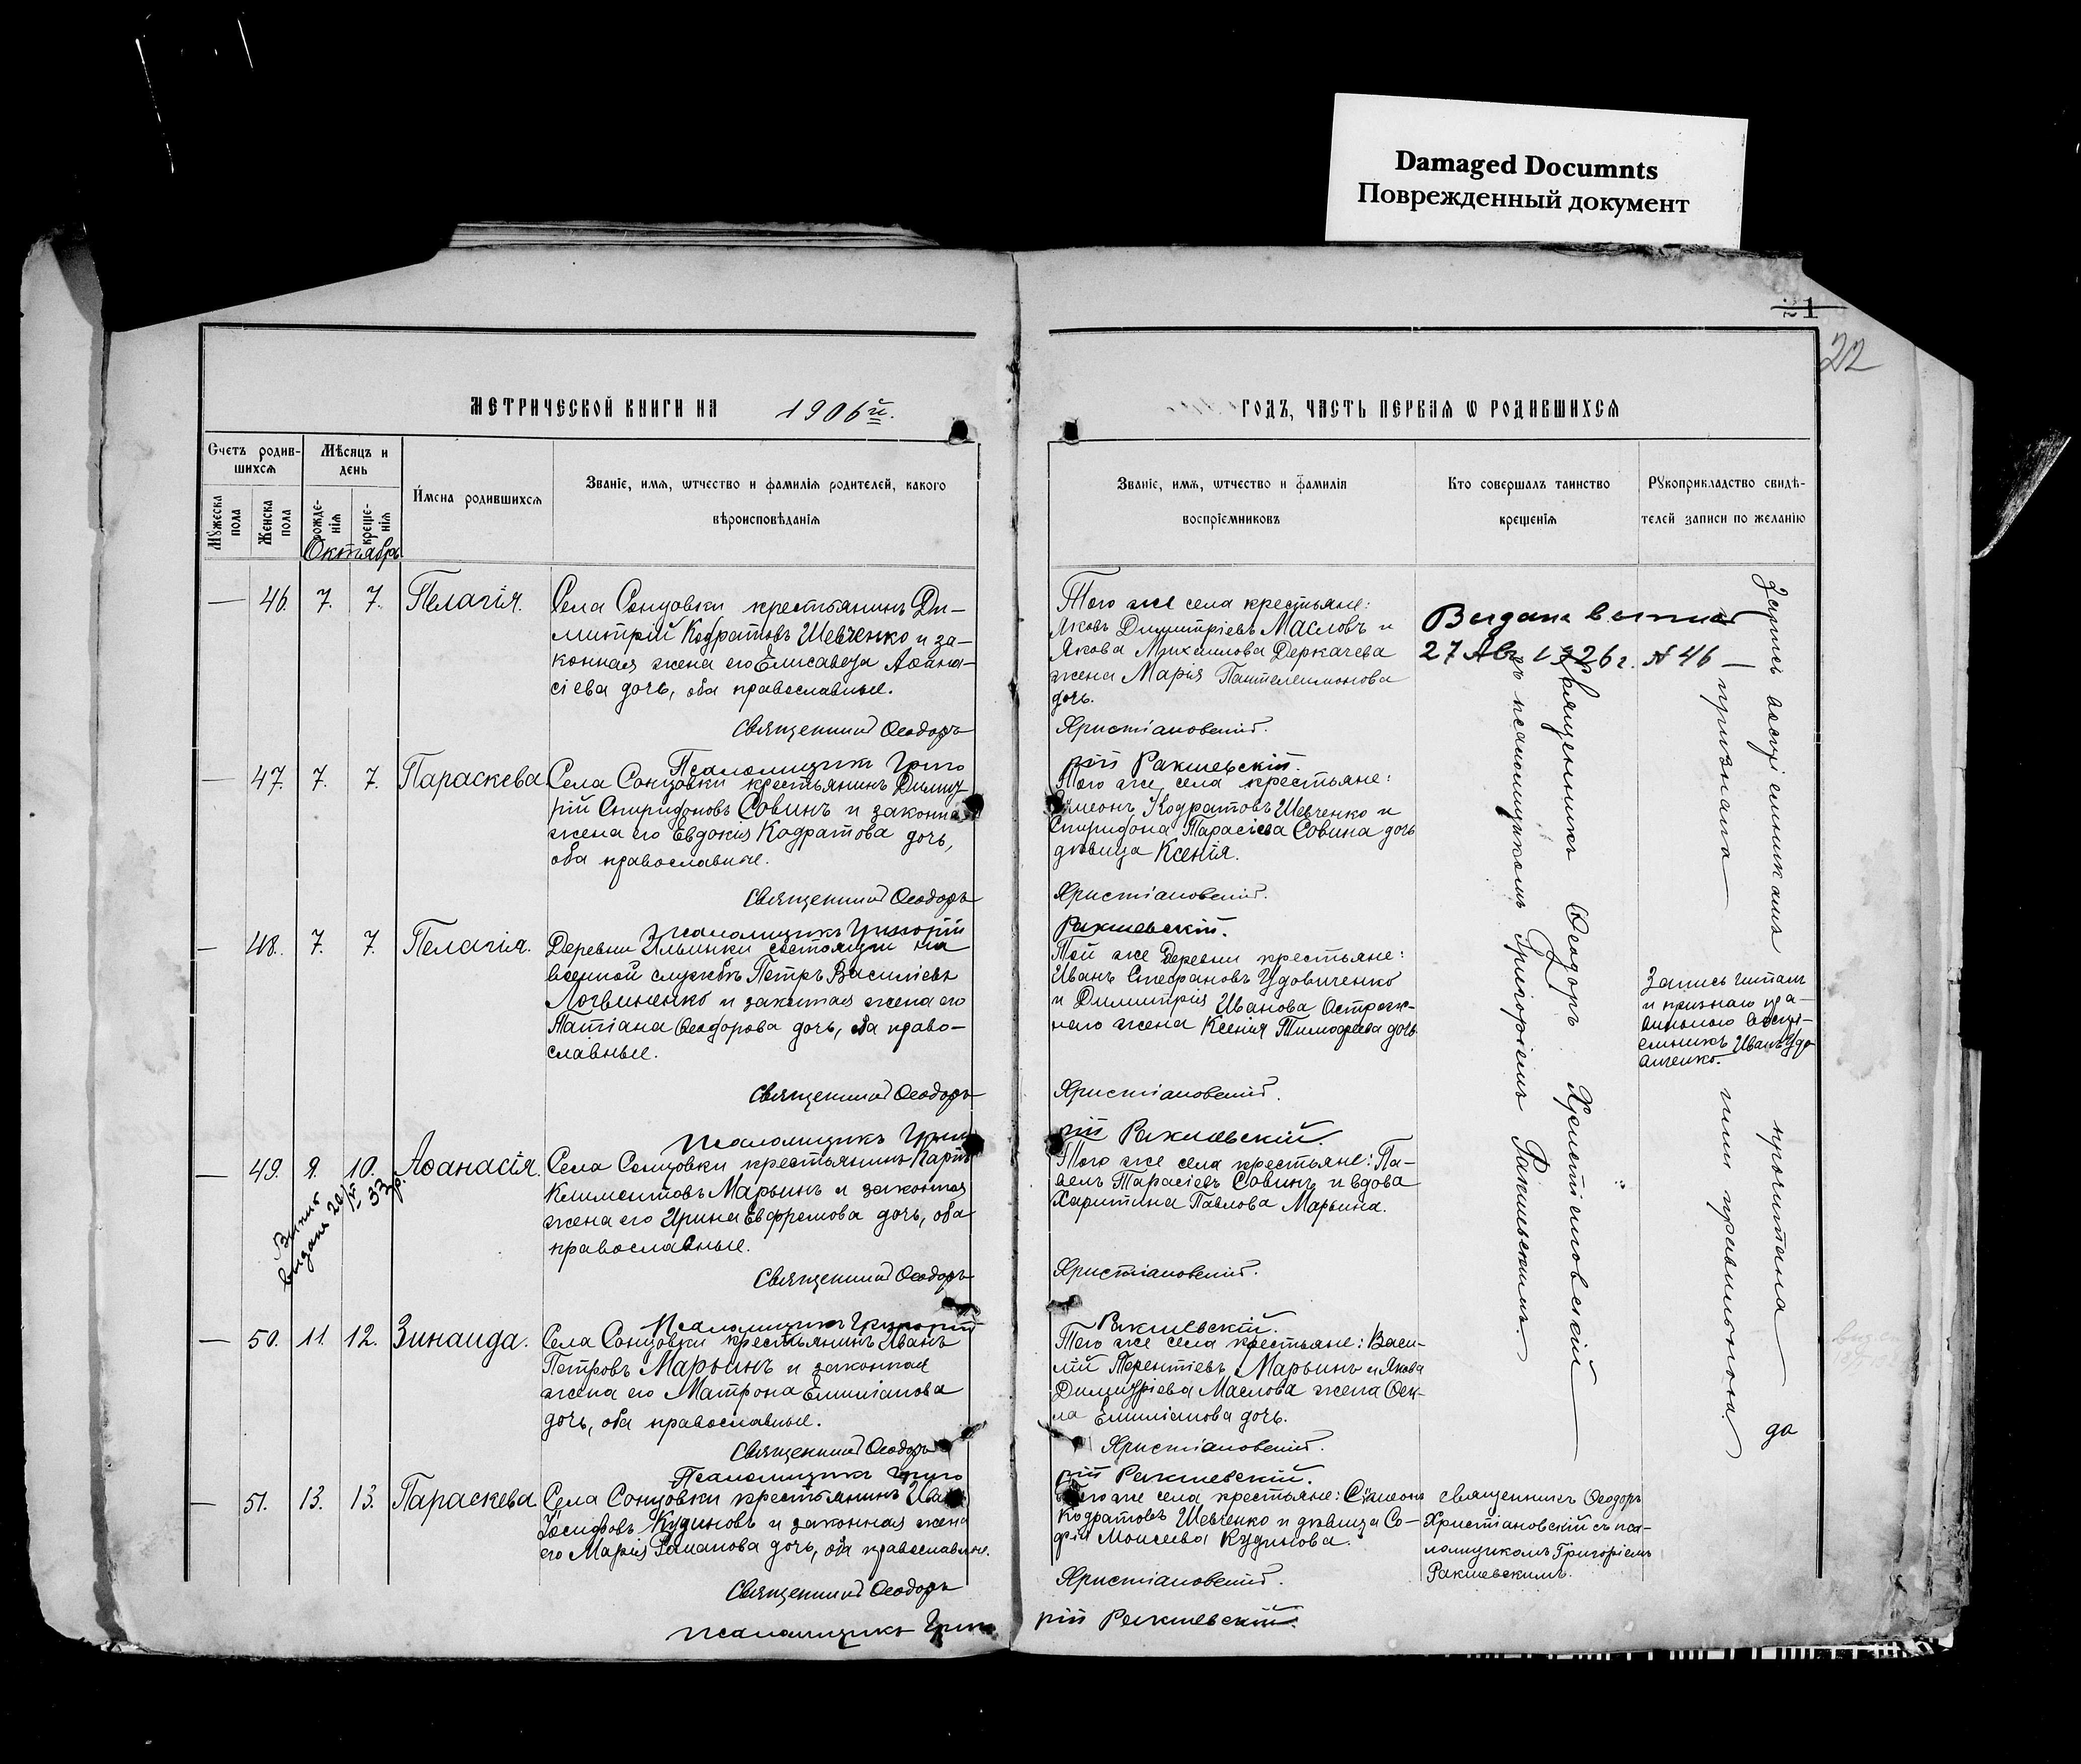 Damaged Documnts
Поврежденный документ
21
22
МЕТРИЧЕСКОЙ КНИГИ НА 1906й.
ГОДЪ, ЧАСТЬ ПЕРВАЯ Ѡ РОДИВШИХСЯ
Счетъ родив-
шихся
Мѣсяцъ и
день
Мужеска
пола
Женска
пола
рожде-
нія
креще-
нія
Имена родившихся
Званіе, имя, ѿтчество и фамилія родителей, какого
вѣроисповѣданія
Званіе, имя, ѿтчество и фамилія
воспріемниковъ
Кто совершалъ таинство
крещенія
Рукоприкладство свидѣ-
телей записи по желанію
Октябрь
— 46. 7. 7. Пелагія.
Села Сонцовки крестьянинъ Ди-
митрій Кодратовъ Шевченко и за-
конная жена его Елисавета Аѳана-
сіева дочь, оба православные.
Того же села крестьяне:
Яковъ Димитріевъ Масловъ и
Якова Михаилова Деркачева
жена Марія Пантелеимонова
дочь.
27 Авг 1926 г. N 46 —
Священникъ Ѳеодоръ Христіановскій.
Псаломщикъ Григо
рій Ракшевскій.
— 47. 7. 7. Параскева
Села Сонцовки крестьянинъ Димит-
рій Спиридоновъ Совинъ и законная
жена его Евдокія Кодратова дочь,
оба православные.
Того же села крестьяне:
Симеонъ Кодратовъ Шевченко и
Спиридона Тарасіева Совина дочь
дѣвица Ксенія.
Священникъ Ѳеодоръ Христіановскій.
Псаломщикъ Григорій
Ракшевскій.
— 48. 7. 7. Пелагія.
Деревни Ильинки состоящій на
военной службѣ Петръ Василіевъ
Логвиненко и законная жена его
Татіана Ѳеодорова дочь, оба право-
славные.
Той же деревни крестьяне:
Иванъ Стефановъ Удовиченко
и Димитрія Иванова Остро
жена Ксенія Тимофеева дочь
Запись читалъ
и признаю пра-
вильною воспрі-
емникъ Иванъ Удо
виченко.
Священникъ Ѳеодоръ Христіановскій.
Псаломщикъ Григо
рій Ракшевскій.
— 49. 9. 10. Аѳанасія.
Выпис
выдана 20/V 33 г.
Села Сонцовки крестьянинъ Карпъ
Климентовъ Марьинъ и законная
жена его Ирина Евфремова дочь, оба
православные.
Того же села крестьяне: Па-
велъ Тарасіевъ Совинъ и вдова
Харитина Павлова Марьина.
Священникъ Ѳеодоръ Христіановскій.
Псаломщикъ Григорій
Ракшевскій.
— 50. 11. 12. Зинаида.
Села Сонцовки крестьянинъ Иванъ
Петровъ Марьинъ и законная
жена его Матрона Емиліанова
дочь, оба православные.
Того же села крестьяне: Васи-
лій Терентіевъ Марьинъ и Якова
Димитріева Маслова жена Ѳек-
ла Емиліанова дочь.
Священникъ Ѳеодоръ Христіановскій.
Псаломщикъ Григо
рій Ракшевскій.
— 51. 13. 13. Параскева
Села Сонцовки крестьянинъ Иванъ
Іосифовъ Кудиновъ и законная жена
его Марія Романова дочь, оба православные.
Того же села крестьяне: Симеонъ
Кодратовъ Шевченко и дѣвица Со-
фія Моисеева Кудинова.
священникъ Ѳеодоръ
Христіановскій съ пса-
ломщикомъ Григоріемъ
Ракшевскимъ.
Священникъ Ѳеодоръ Христіановскій.
псаломщикъ Григо
рій Ракшевскій.
Священникъ Ѳеодоръ Христіановскій
съ псаломщикомъ Григоріемъ Ракшевскимъ.
Запись воспріемникамъ прочитана
и признана ими правильною.